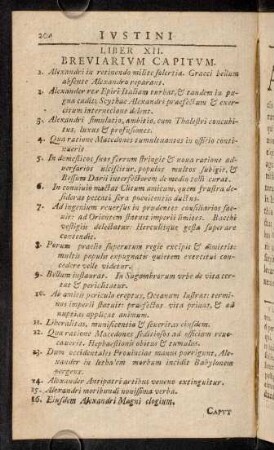 204 IVSTINI
LIBER XII.
BREVIARIVM CAPITVM.
1. Alexandri in retinendo milite solertia. Graeci bellum
absente Alexandro reparant.
2. Alexander rex Epiri Italiam turbat, & tandem in pu
gna cadit, Scythae Alexandri praefectum & exer-
citum internecione delent.
3. Alexandri simulatio, ambitio, cum Thalestri concubi-
tus, luxus & profusiones.
4. Qua ratione Macedones tumultuantes in officio conti-
nuerit
5. In domesticos suos ferrum stringit & noua ratione ad-
uersarios vlciscitur, populos multos subigit, &
Bessum Darii interfectorem è medio tolli curat.
6. In conuiuio mactat Clitum amicum, quem frustra de-
siderat poenitentia ductus.
7. Ad ingenium reuersus in pendentes consiliarios
ad Orientem statuit imperii limites. Bacchi
vestigiis delectatur Herculisque gesta superare
contendit.
8. Porum praelio superatum regem excipit & dimittit:
multis populis expugnatis quietem exercitui con-
cedere velle videtur.
9. Bellum instaurat. In Sugambrarum vrbe de vita certa
tur & periclitatur.
10. Ab amissis periculo ereptus, Oceanum lustrat: termi-
nos imperii statuit: praefectus vita priuat, & ad
nuptias applicat animum.
11. Liberalitas, munificentia & seueritas eiusdem.
12. Qua ratione Macedones seditiosos ad officium reuo-
cauerit. Hephaestionis obitus & tumulus.
13. Dum occidentales Prouinciae manus porrigunt, Ale-
xander in lethalem morbum incidit Babylonem
pergens.
14. Alexander Antipatri artibus veneno extinguitur.
15. Alexandri moribundi nouissima verba.
16. Eiusdem Alexandri Magni elogium.
CAPVT